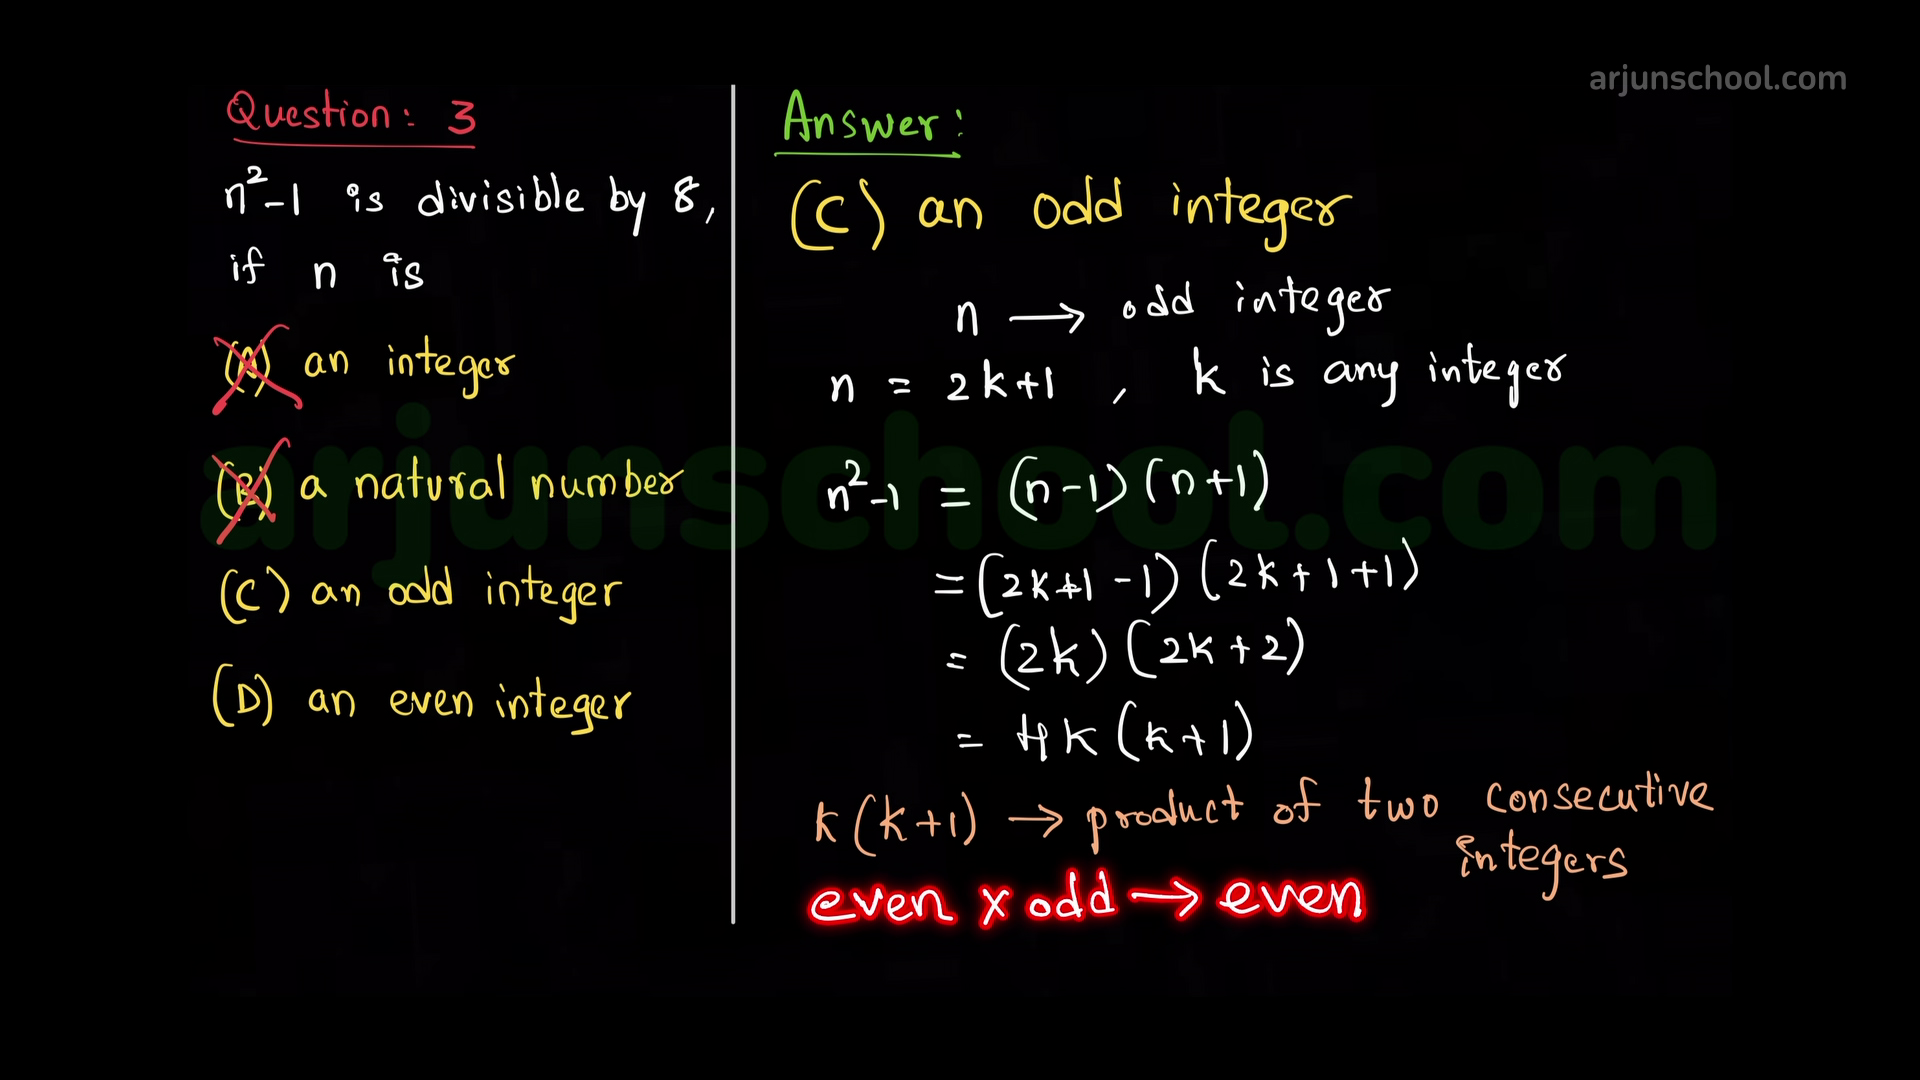 arjunschool.com
Question: 3
n²-1 is divisible by 8,
if n is
(A) an integer
(B) a natural number
(C) an odd integer
(D) an even integer
Answer:
(C) an odd integer
n → odd integer
n = 2k+1 , k is any integer
n²-1 = (n-1)(n+1)
=(2k+1-1)(2k+1+1)
= (2k)(2k+2)
= 4k(k+1)
k(k+1) → product of two consecutive
integers
even x odd → even
arjunschool.com